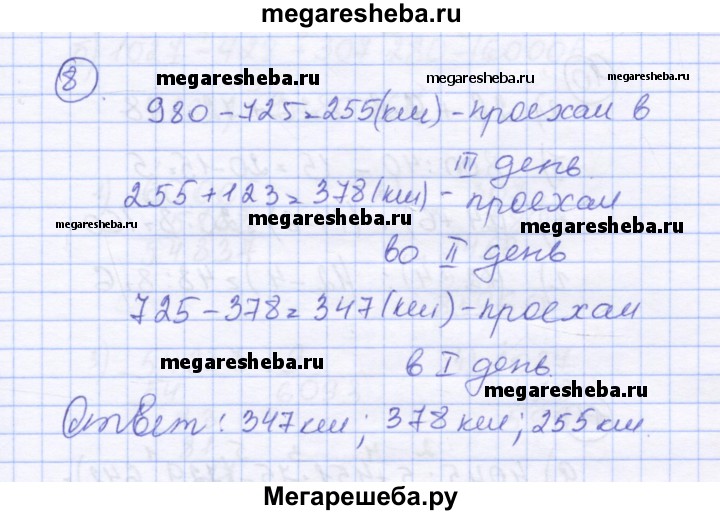 megaresheba.ru
8
megaresheba.ru megaresheba.ru megaresheba.ru
980-725=255(км)-проехал в
III день.
255+123=378(км)- проехал
megaresheba.ru megaresheba.ru megaresheba.ru
во II день
725-378=347(км)-проехал
megaresheba.ru
в I день.
megaresheba.ru
Ответ: 347км; 378км; 255км.
Мегарешеба.ру